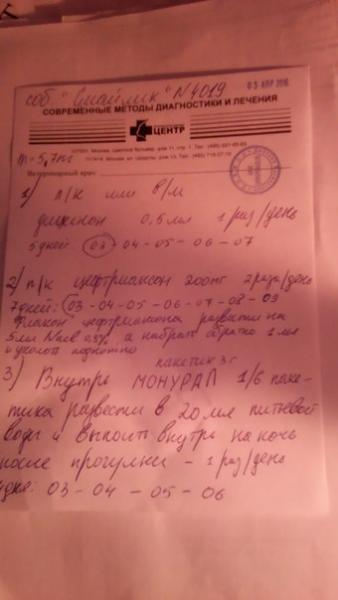 соб. "Смайлик" N 4019
03 АПР 2016
СОВРЕМЕННЫЕ МЕТОДЫ ДИАГНОСТИКИ И ЛЕЧЕНИЯ
ЦЕНТР
m = 5,7 кг
Ветеринарный врач
1) п/к или в/м
дицинон 0,5 мл 1 раз/день
5 дней: 03 - 04 - 05 - 06 - 07
2) п/к цефтриаксон 200 мг 2 раза/день
7 дней: 03 - 04 - 05 - 06 - 07 - 08 - 09
Флакон цефтриаксона развести на
5 мл NaCl 0,9% а набрать обратно 1 мл
и уколоть подкожно
пакетик 3 г
3) Внутрь МОНУРАЛ 1/6 паке-
тика развести в 20 мл питьевой
воды и выпоить внутрь на ночь
после прогулки - 1 раз/день
дня: 03 - 04 - 05 - 06